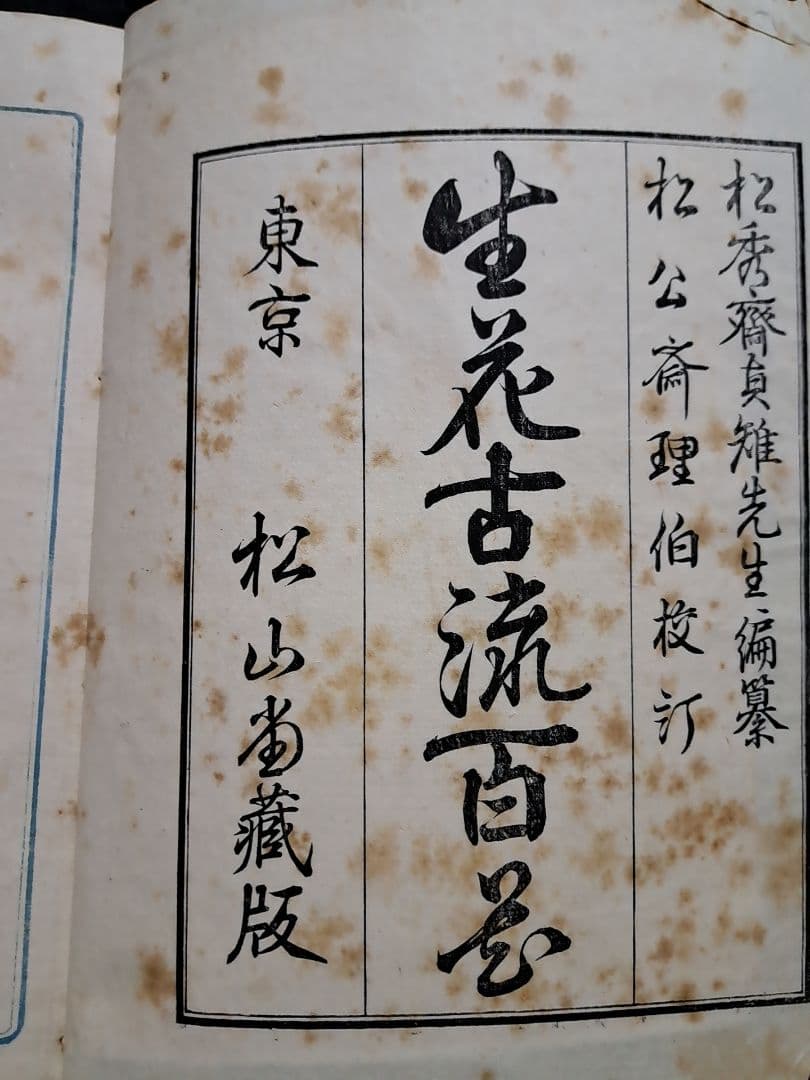 松秀齋貞雉先生編纂
松公斎理伯校訂
生花古流百花
東京 松山堂藏版